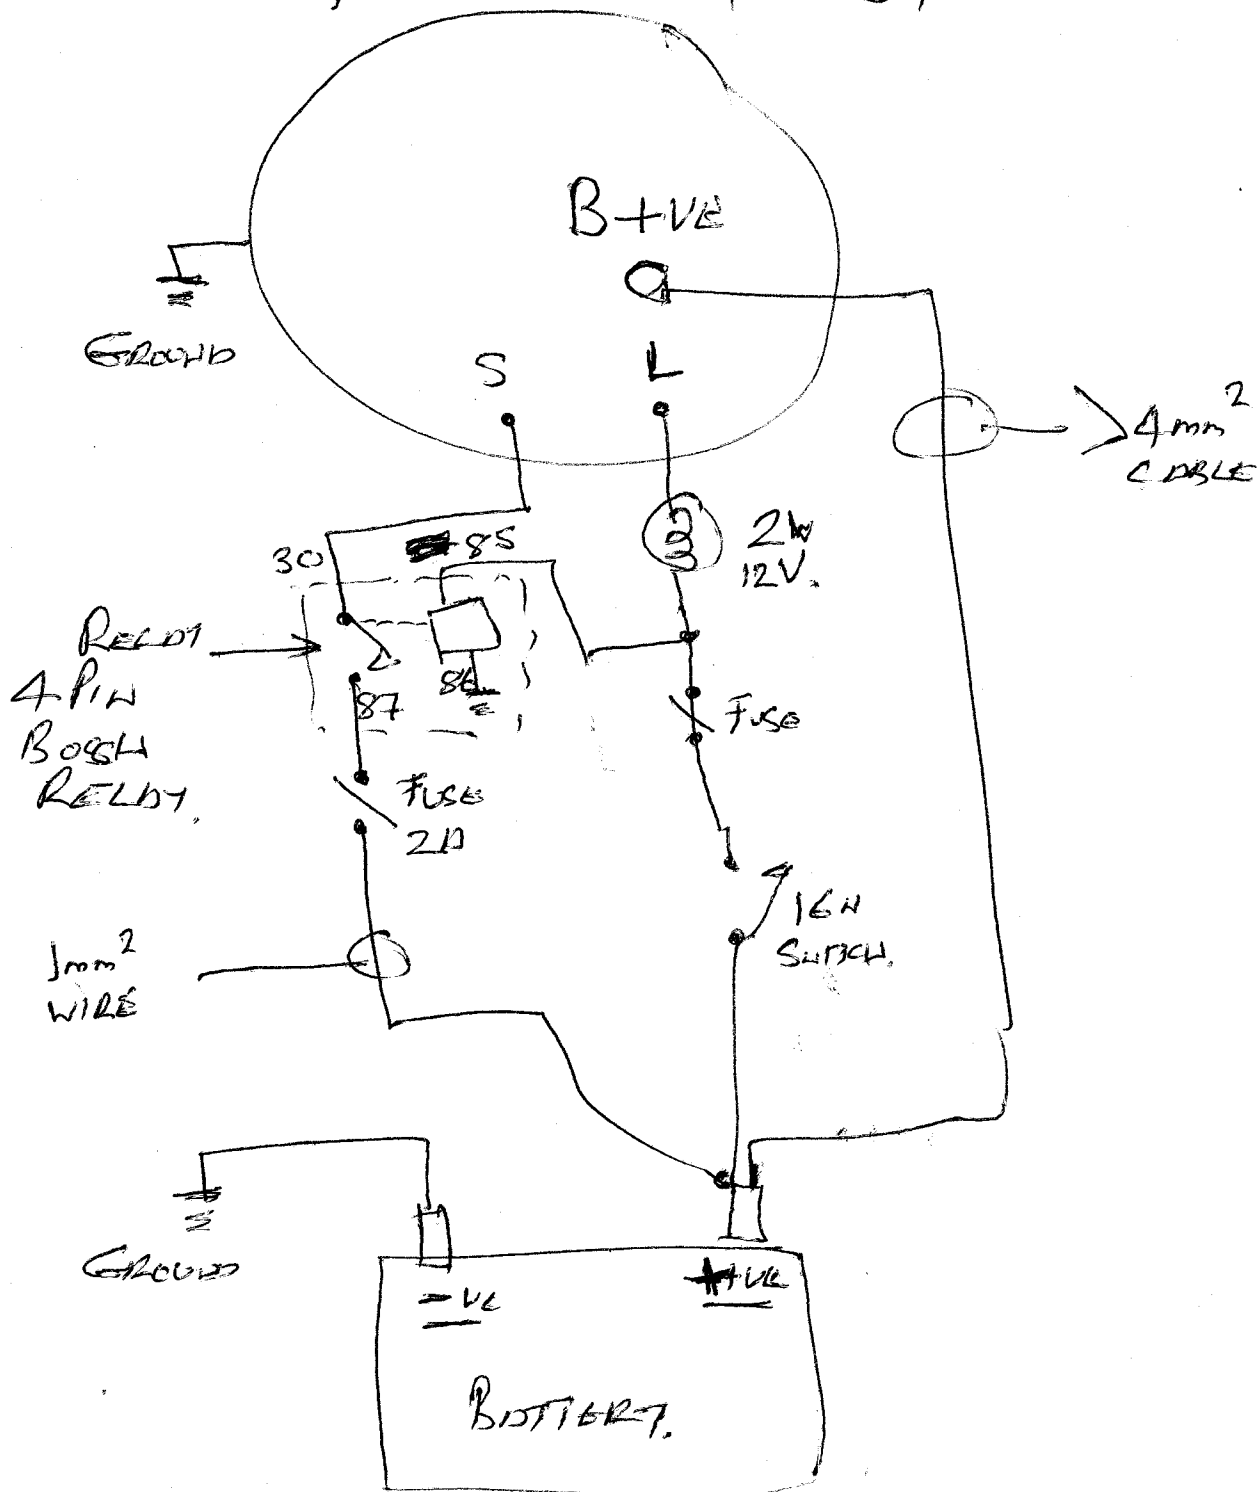 B+VE
GROUND
S
L
4mm²
CABLE
30
85
2W
12V.
RELAY
4 PIN
BOSCH
RELAY.
86
87
FUSE
FUSE
2A
IGN
SWITCH.
1mm²
WIRE
GROUND
-VE
+VE
BATTERY.